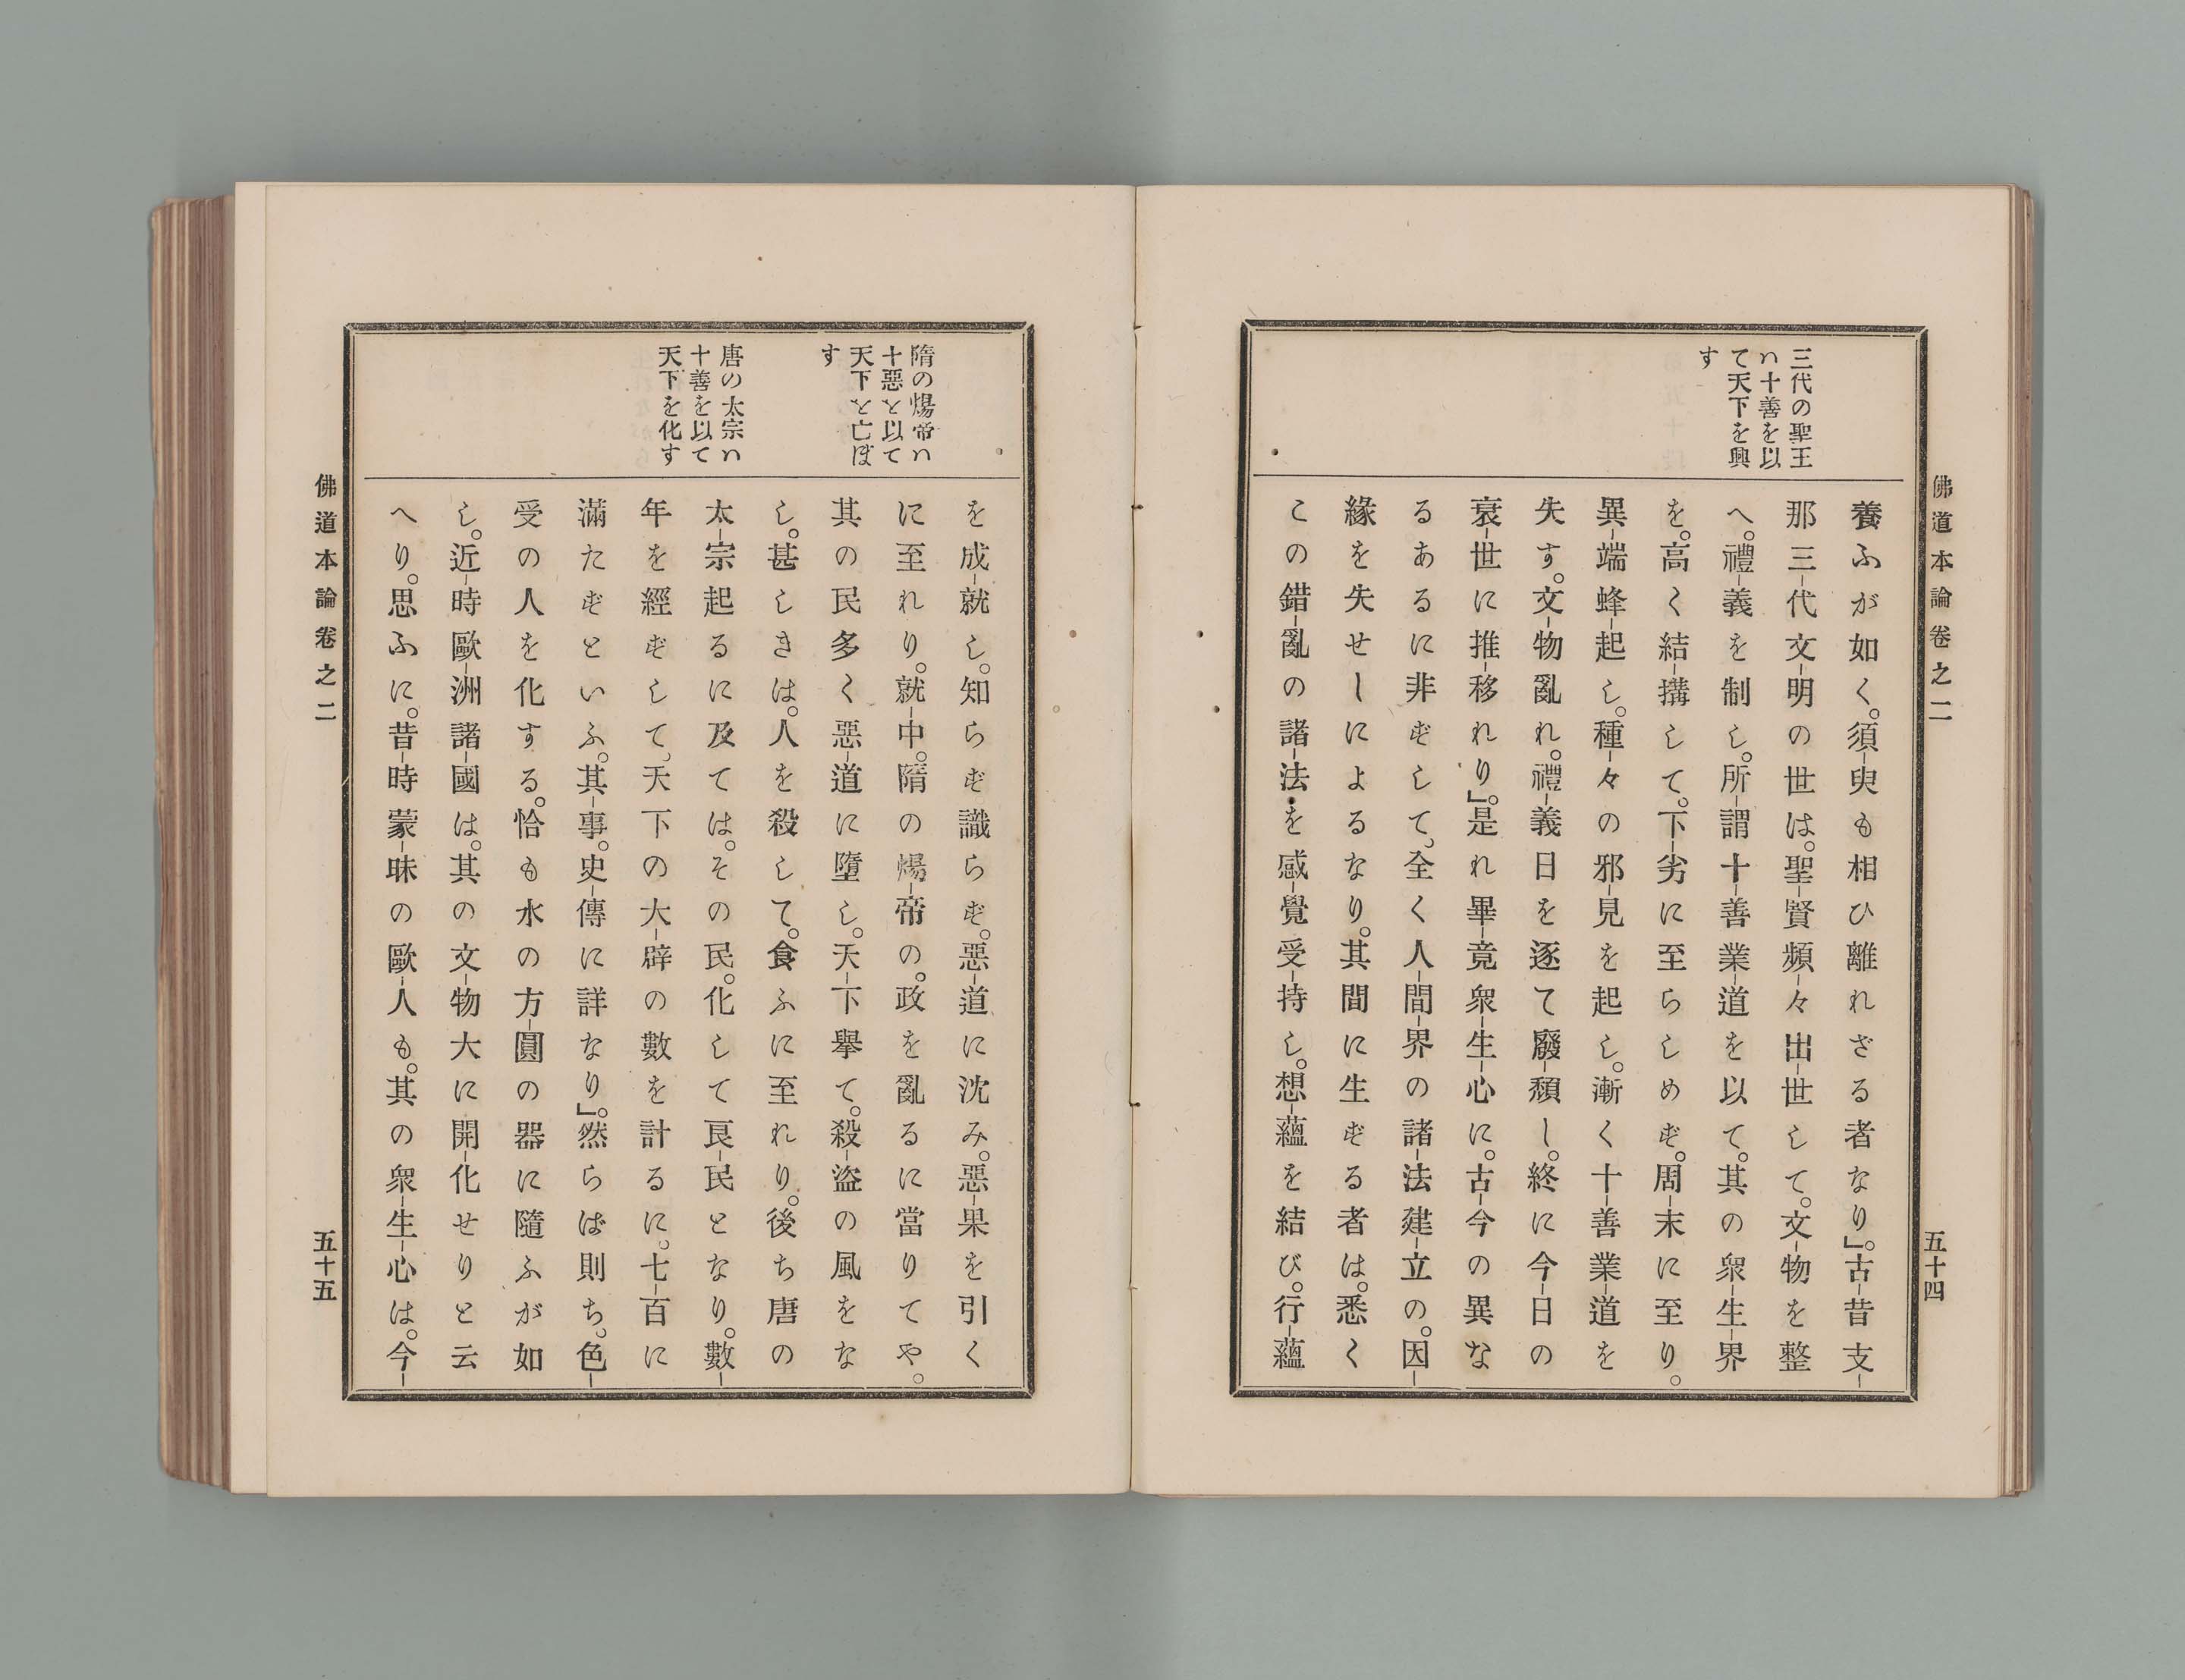 佛道本論卷之二
五十四
三代の聖王
ハ十善を以
て天下を興
す
養ふが如く。須-臾も相ひ離れざる者なり」。古-昔支-
那三-代文-明の世は。聖-賢頻-々出-世して。文-物を整
へ。禮-義を制し。所-謂十-善業-道を以て。其の衆-生-界
を。高く結-搆して。下-劣に至らしめず。周-末に至り。
異-端蜂-起し。種-々の邪-見を起し。漸く十-善業-道を
失す。文-物亂れ。禮-義日を逐て廢-頽し。終に今-日の
衰-世に推-移れり」。是れ畢-竟衆-生-心に。古-今の異な
るあるに非ずして、全く人-間-界の諸-法建-立の。因-
緣を失せしによるなり。其間に生ずる者は。悉く
この錯-亂の諸-法を感-覺受-持し。想-蘊を結び。行-蘊
隋の煬帝ハ
十惡を以て
天下を亡ぼ
す
唐の太宗ハ
十善を以て
天下を化す
を成-就し。知らず識らず。惡-道に沈み。惡-果を引く
に至れり。就-中。隋の煬-帝の。政を亂るに當りてや。
其の民多く惡-道に墮し。天-下擧て。殺-盜の風をな
し。甚しきは。人を殺して。食ふに至れり。後ち唐の
太-宗起るに及ては。その民。化して良-民となり。數-
年を經ずして、天下の大-辟の數を計るに。七-百に
滿たずといふ。其-事。史-傳に詳なり」。然らば則ち。色-
受の人を化する。恰も水の方-圓の器に隨ふが如
し。近-時歐-洲諸-國は。其の文-物大に開-化せりと云
へり。思ふに。昔-時蒙-昧の歐-人も。其の衆-生-心は。今-
佛道本論卷之二
五十五